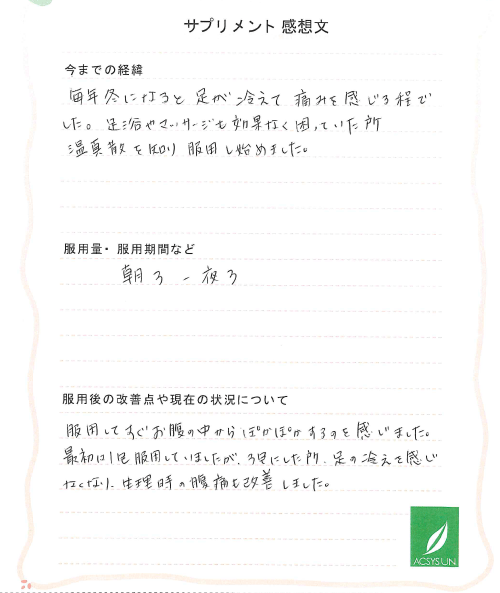 サプリメント 感想文
今までの経緯
毎年冬になると 足が 冷えて 痛みを 感じる程で
した。足浴やマッサージも効果なく困っていた所
温真散を知り 服用し始めました。
服用量・服用期間など
朝3 - 夜3
服用後の改善点や現在の状況について
服用してすぐお腹の中からぽかぽかするのを感じました。
最初は1包服用していましたが、3包にした所、足の冷えを感じ
なくなり、生理時の腹痛も改善しました。
ACSYSUN